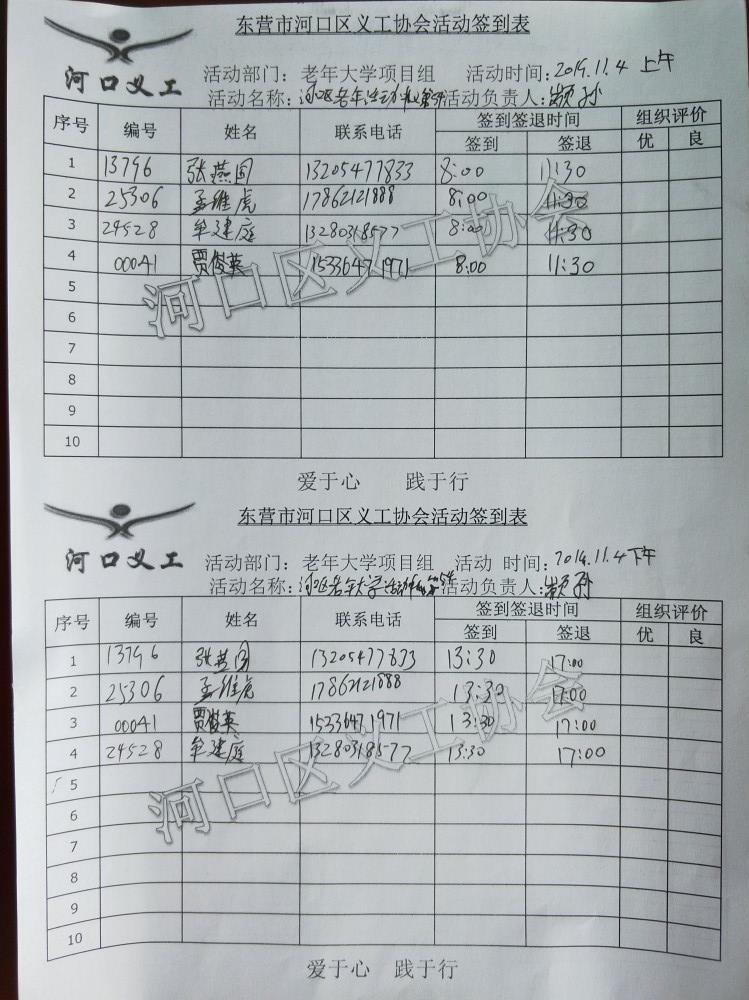 东营市河口区义工协会活动签到表
河口义工
活动部门：老年大学项目组 活动时间：2014.11.4 上午
活动名称：河口区老年活动 活动负责人：颖孙
序号 编号 姓名 联系电话 签到签退时间 组织评价
签到 签退 优 良
1 13796 张燕图 13205477833 8:00 11:30
2 25306 孟维虎 17862121888 8:00 11:30
3 24528 牟建庭 13280318577 8:00 11:30
4 00041 贾俊英 15336471971 8:00 11:30
5
6
7
8
9
10
河口区义工协会
爱于心 践于行
东营市河口区义工协会活动签到表
河口义工
活动部门：老年大学项目组 活动 时间：2014.11.4 下午
活动名称：河口区老年大学活动 活动负责人：颖孙
序号 编号 姓名 联系电话 签到签退时间 组织评价
签到 签退 优 良
1 13796 张燕图 13205477833 13:30 17:00
2 25306 孟维虎 17862121888 13:30 17:00
3 00041 贾俊英 15336471971 13:30 17:00
4 24528 牟建庭 13280318577 13:30 17:00
5
6
7
8
9
10
河口区义工协会
爱于心 践于行